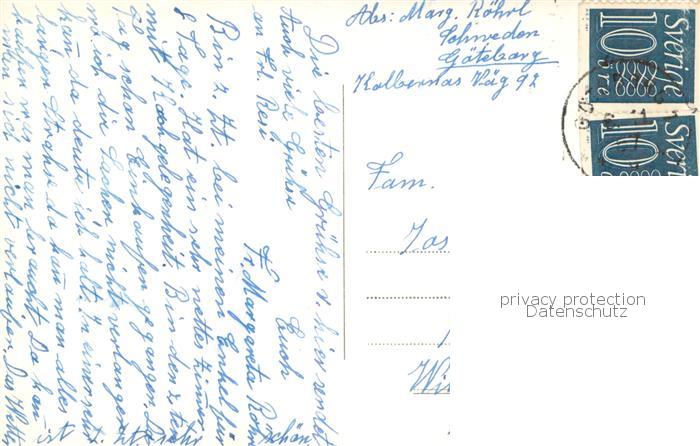 Die besten Grüße v. hier sendet
Auch viele Grüße Euch
an Frl. Resi. Fr. Margareta
Bin z. Zt. bei meinen Enkel für
8 Tage. Hat ein sehr nettes Zimmer
mit Kochgelegenheit. Bin den 2. ten
Tag schon al. Einkaufen gegangen. Da
wo ich die Sachen nicht verlangen
kan, da deute ich halt. In einer sehr
langen Strahse da kan man alles
kaufen was man braucht. Da kan
man sich nicht verlaufen. Das Wetter
ist
schön
Abs: Marg. Röhrl
Schweden
Göteborg
Kolbernas Väg 92
Fam.
Jos
Wi
Sverige
10
öre
Sverige
10
privacy protection
Datenschutz